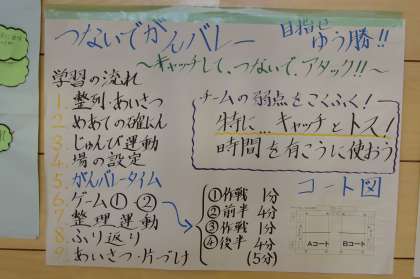 つないでがんバレー
目指せ
ゆう勝!!
〜キャッチして、つないで、アタック!!〜
学習の流れ
1. 整列・あいさつ
2. めあての確にん
3. じゅんび運動
4. 場の設定
5. がんバレータイム
6. ゲーム① ②
7. 整理運動
8. ふり返り
9. あいさつ・片づけ
チームの弱点をこくふく!
特に…キャッチとトス!
時間を有こうに使おう
①作戦 1分
②前半 4分
③作戦 1分
④後半 4分
(5分)
コート図
Aコート
Bコート